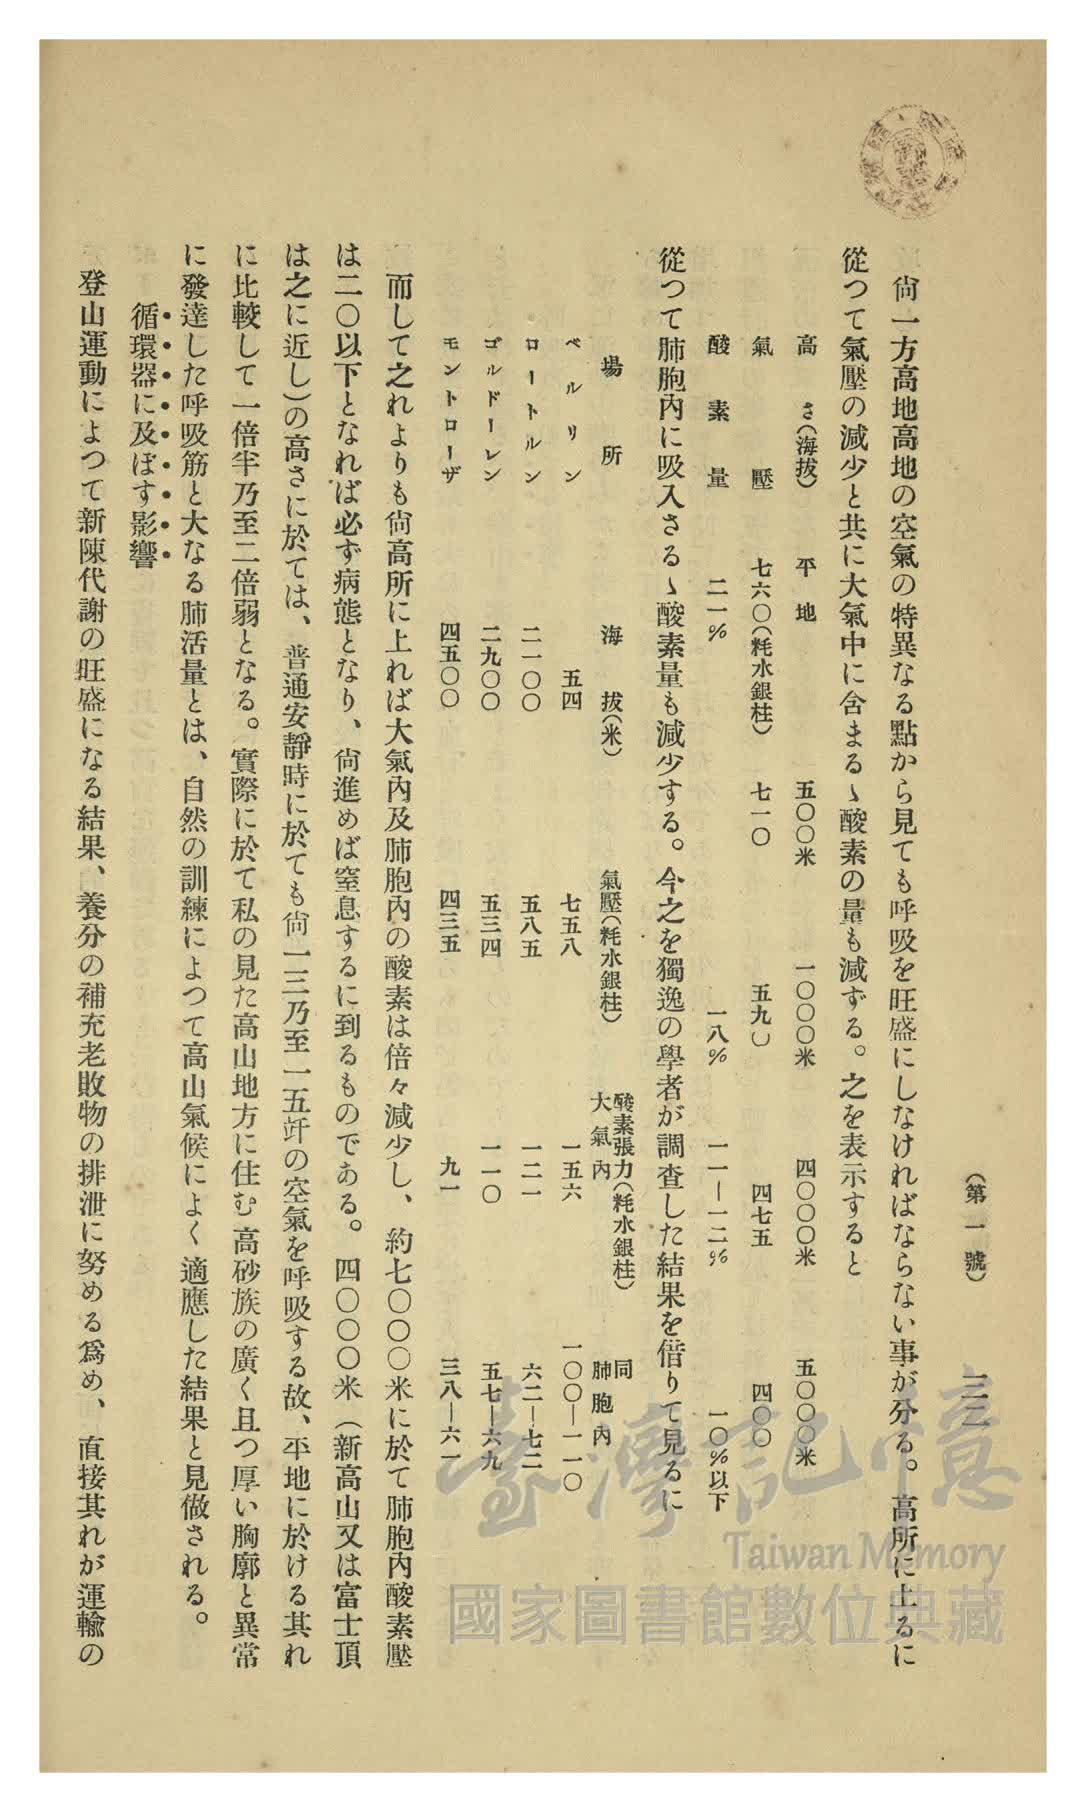 （第一號）　二二
尙一方高地高地の空氣の特異なる點から見ても呼吸を旺盛にしなければならない事が分る。高所に上るに
從つて氣壓の減少と共に大氣中に含まるゝ酸素の量も減ずる。之を表示すると
高さ（海拔）　平地　五〇〇米　一〇〇〇米　四〇〇〇米　五〇〇〇米
氣壓　七六〇（粍水銀柱）　七一〇　五九〇　四七五　四〇〇
酸素量　二一%　一八%　一一—一二%　一〇%以下
從つて肺胞內に吸入さるゝ酸素量も減少する。今之を獨逸の學者が調査した結果を借りて見るに
場所　海拔（米）　氣壓（粍水銀柱）　酸素張力（粍水銀柱）大氣內　同肺胞內
ベルリン　五四　七五八　一五六　一〇〇—一一〇
ロートルン　二一〇〇　五八五　一二一　六二—七二
ゴルドーレン　二九〇〇　五三四　一一〇　五七—六九
モントローザ　四五〇〇　四三五　九一　三八—六一
而して之れよりも尙高所に上れば大氣內及肺胞內の酸素は倍々減少し、約七〇〇〇米に於て肺胞內酸素壓
は二〇以下となれば必ず病態となり、尙進めば窒息するに到るものである。四〇〇〇米（新高山又は富士頂
は之に近し）の高さに於ては、普通安靜時に於ても尙一三乃至一五竏の空氣を呼吸する故、平地に於ける其れ
に比較して一倍半乃至二倍弱となる。實際に於て私の見た高山地方に住む高砂族の廣く且つ厚い胸廓と異常
に發達した呼吸筋と大なる肺活量とは、自然の訓練によつて高山氣候によく適應した結果と見做される。
循環器に及ぼす影響
登山運動によつて新陳代謝の旺盛になる結果、養分の補充老敗物の排泄に努める爲め、直接其れが運輸の
臺灣記憶
Taiwan Memory
國家圖書館數位典藏